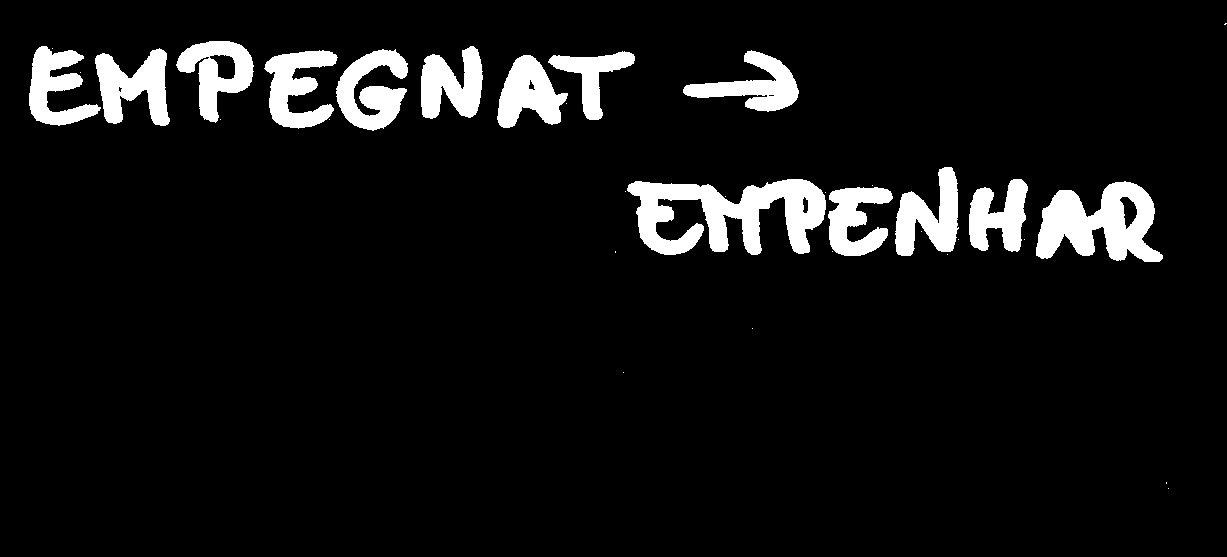 EMPEGNAT →
EMPENHAR